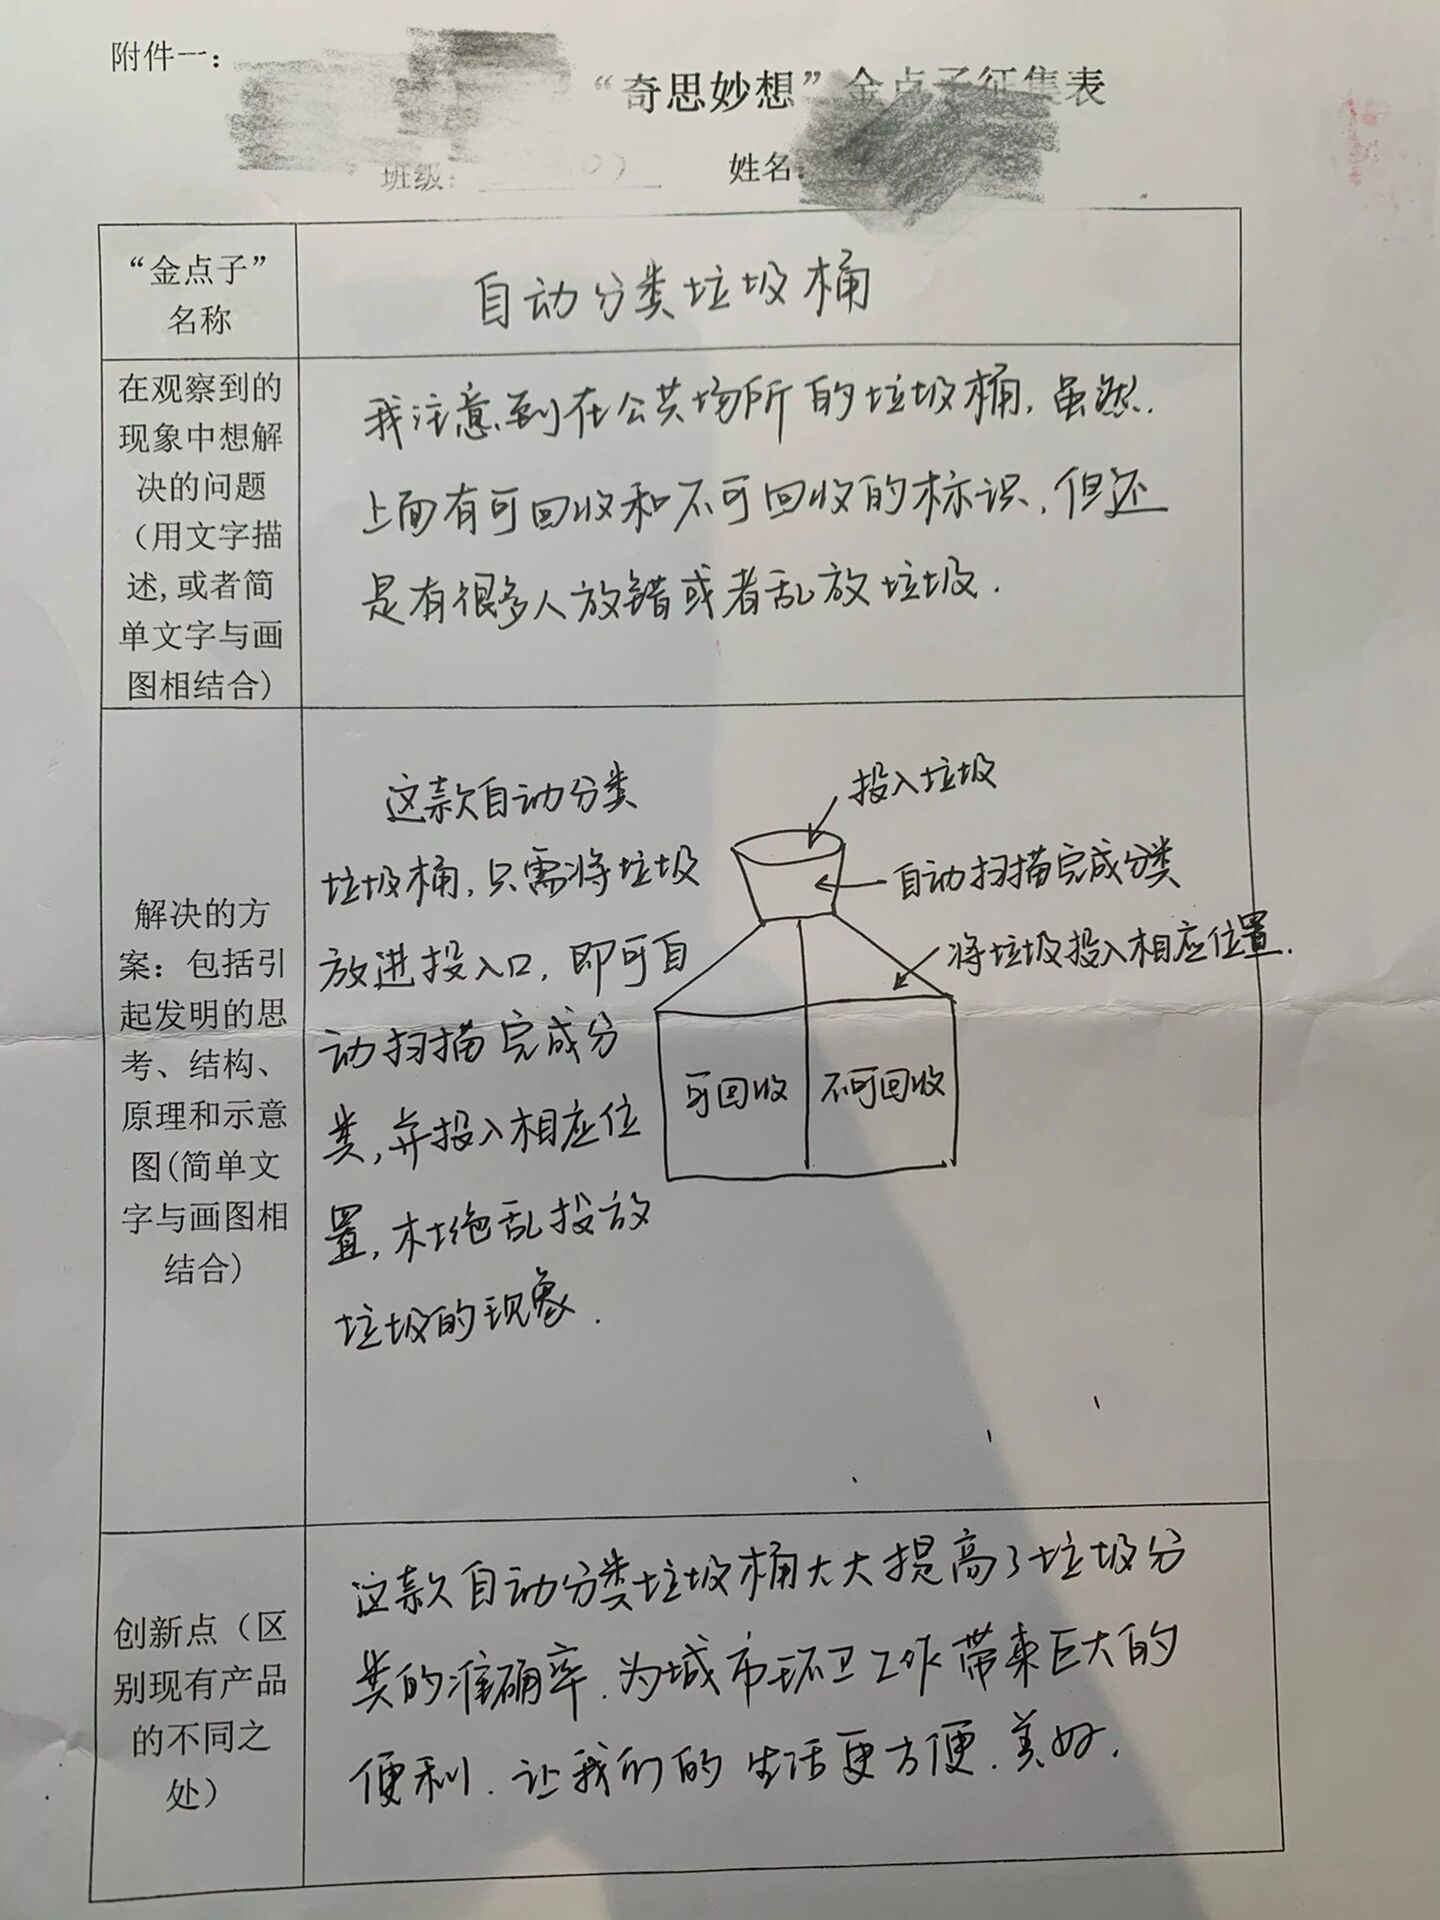 附件一：
“奇思妙想”金点子征集表
班级：
姓名：
“金点子”
名称
自动分类垃圾桶
在观察到的
现象中想解
决的问题
（用文字描
述,或者简
单文字与画
图相结合）
我注意到在公共场所的垃圾桶，虽然
上面有可回收和不可回收的标识，但还
是有很多人放错或者乱放垃圾.
解决的方
案：包括引
起发明的思
考、结构、
原理和示意
图(简单文
字与画图相
结合)
这款自动分类
垃圾桶，只需将垃圾
放进投入口，即可自
动扫描完成分
类，并投入相应位
置，杜绝乱投放
垃圾的现象.
投入垃圾
自动扫描完成分类
将垃圾投入相应位置.
可回收
不可回收
创新点（区
别现有产品
的不同之
处）
这款自动分类垃圾桶大大提高了垃圾分
类的准确率、为城市环卫工作带来巨大的
便利、让我们的生活更方便、美好.